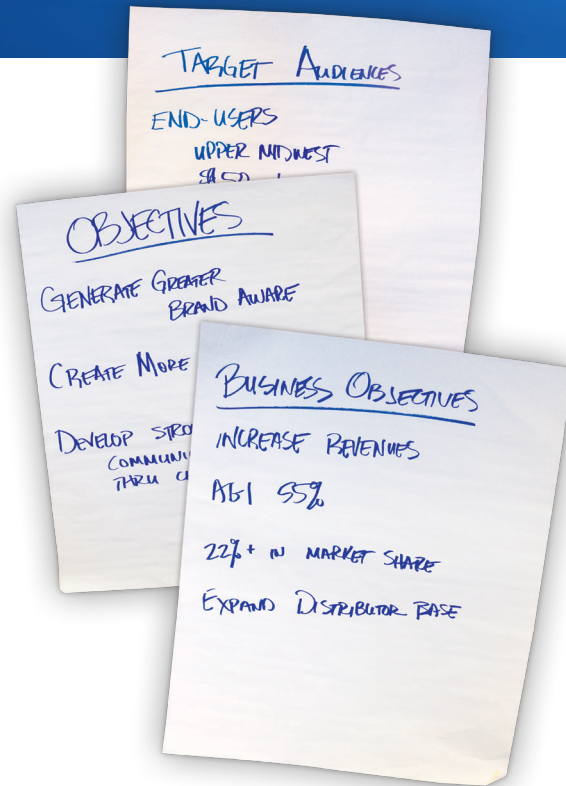 TARGET AUDIENCES
END-USERS
UPPER MIDWEST
OBJECTIVES
GENERATE GREATER
BRAND AWARE
CREATE MORE
DEVELOP
THRU
BUSINESS OBJECTIVES
INCREASE REVENUES
55%
22%+ IN MARKET SHARE
EXPAND DISTRIBUTOR BASE